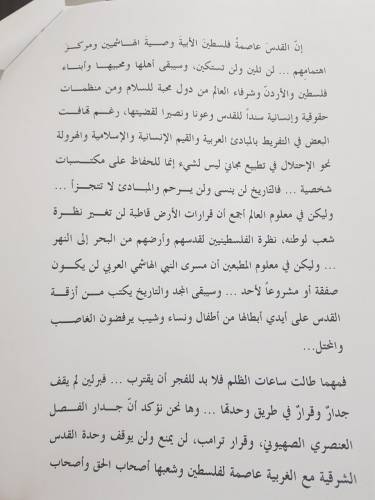 إنّ القدس عاصمةُ فلسطينَ الأبيةَ وصيةَ الهاشميين ومركز
اهتمامِهم ... لن تلين ولن تستكين، وسيبقى أهلها ومحبيها وأبناء
فلسطين والأردنّ وشرفاء العالم من دول محبة للسلام ومن منظمات
حقوقية وإنسانية سنداً للقدس وعونا ونصيرا لقضيتها، رغم تهافت
البعض في التفريط بالمبادئ العربية والقيم الإنسانية والإسلامية والهرولة
نحو الإحتلال في تطبيع مجانيّ ليس لشيء إنما للحفاظ على مكتسبات
شخصية ... فالتاريخ لن ينسى ولن يرحم والمبادئ لا تتجزأ ...
وليكن في معلوم العالم أجمع أن قرارات الأرض قاطبة لن تغير نظرة
شعب لوطنه، نظرة الفلسطينيين لقدسهم وأرضهم من البحر إلى النهر
... وليكن في معلوم المطبعين أن مسرى النبي الهاشمي العربي لن يكون
صفقة أو مشروعاً لأحد ... وسيبقى المجد والتاريخ يكتب من أزقة
القدس على أيدي أبطالها من أطفال ونساء وشيب يرفضون الغاصب
والمحتل...
فمهما طالت ساعات الظلم فلا بد للفجر أن يقترب ... فبرلين لم يقف
جدارٌ وقرارٌ في طريق وحدتها ... وها نحن نؤكد أنّ جدار الفصل
العنصري الصهيوني، وقرار ترامب، لن يمنع ولن يوقف وحدة القدس
الشرقية مع الغربية عاصمة لفلسطين وشعبها أصحاب الحق وأصحاب